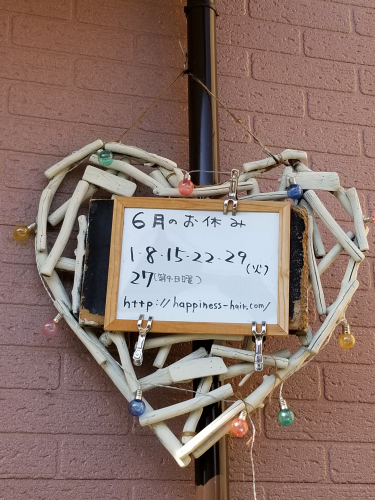 6月のお休み
1・8・15・22・29(火)
27(第4日曜)
http://happiness-hair.com/